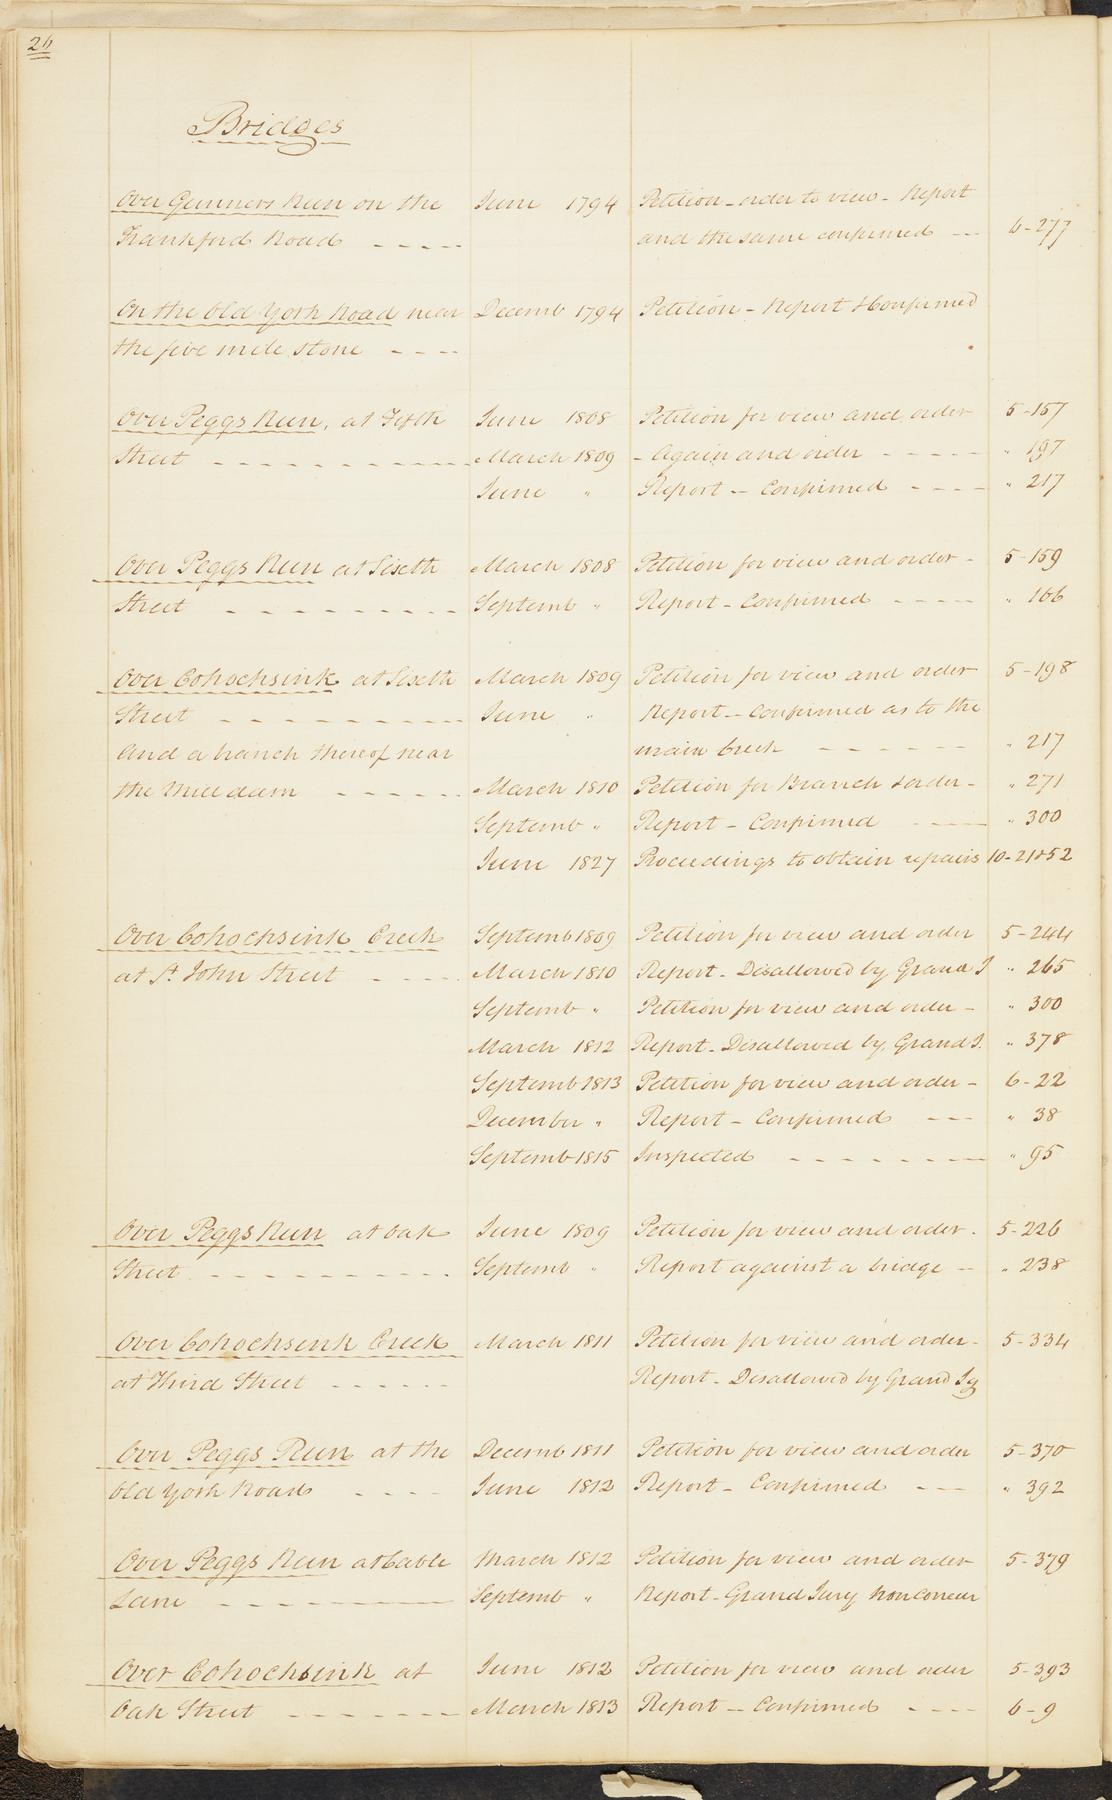 26
Bridges
Over Gunners Run on the June 1794 Petition - order to view - Report
Frankford Road - - - - - and the same confirmed - - - 6-277
On the Old York Road near Decemb 1794 Petition - Report & Confirmed
the five mile stone - - - -
Over Peggs Run, at Fifth June 1808 Petition for view and order 5-157
Street - - - - - - - - - - - - March 1809 - Again and order - - - - - " 197
June " Report - Confirmed - - - - " 217
Over Peggs Run at Sixth March 1808 Petition for view and order - 5-159
Street - - - - - - - - - Septemb " Report - Confirmed - - - - " 166
Over Cohochsink at Sixth March 1809 Petition for view and order 5-198
Street - - - - - - - - - June " Report - Confirmed as to the
And a branch thereof near main Creek - - - - - - " 217
the Mill dam - - - - - March 1810 Petition for Branch & order - " 271
Septemb " Report - Confirmed - - - " 300
June 1827 Proceedings to obtain repairs 10-21&52
Over Cohochsink Creek Septemb 1809 Petition for view and order 5-244
at St. John Street - - - - March 1810 Report - Disallowed by Grand J " 265
Septemb " Petition for view and order - " 300
March 1812 Report - Disallowed by Grand J. " 378
Septemb 1813 Petition for view and order - 6-22
December " Report - Confirmed - - - " 38
Septemb 1815 Inspected - - - - - - - - " 95
Over Peggs Run at Oak June 1809 Petition for view and order - 5-226
Street - - - - - - - - - - Septemb " Report against a bridge - - " 238
Over Cohochsink Creek March 1811 Petition for view and order - 5-334
at Third Street - - - - - - Report - Disallowed by Grand Jy
Over Peggs Run at the Decemb 1811 Petition for view and order 5-370
Old York Road - - - - June 1812 Report - Confirmed - - - " 392
Over Peggs Run at Cable March 1812 Petition for view and order 5-379
Lane - - - - - - - - - Septemb " Report - Grand Jury non concur
Over Cohochsink at June 1812 Petition for view and order 5-393
Oak Street - - - - - - - - March 1813 Report - Confirmed - - - - 6-9